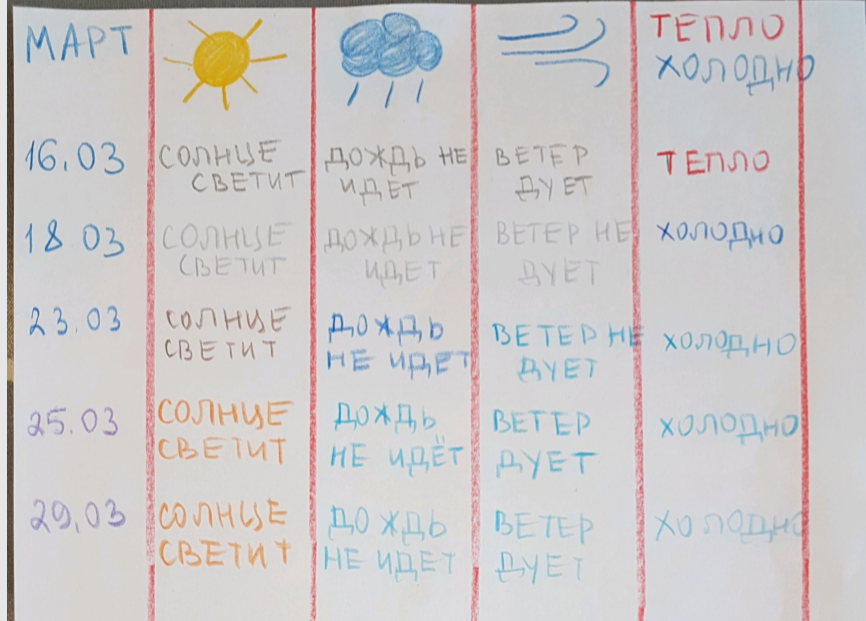 МАРТ
ТЕПЛО
ХОЛОДНО
16.03
СОЛНЦЕ
СВЕТИТ
ДОЖДЬ НЕ
ИДЕТ
ВЕТЕР
ДУЕТ
ТЕПЛО
18 03
СОЛНЦЕ
СВЕТИТ
ДОЖДЬ НЕ
ИДЕТ
ВЕТЕР НЕ
ДУЕТ
ХОЛОДНО
23.03
СОЛНЦЕ
СВЕТИТ
ДОЖДЬ
НЕ ИДЕТ
ВЕТЕР НЕ
ДУЕТ
ХОЛОДНО
25.03
СОЛНЦЕ
СВЕТИТ
ДОЖДЬ
НЕ ИДЁТ
ВЕТЕР
ДУЕТ
ХОЛОДНО
29.03
СОЛНЦЕ
СВЕТИТ
ДОЖДЬ
НЕ ИДЕТ
ВЕТЕР
ДУЕТ
ХОЛОДНО